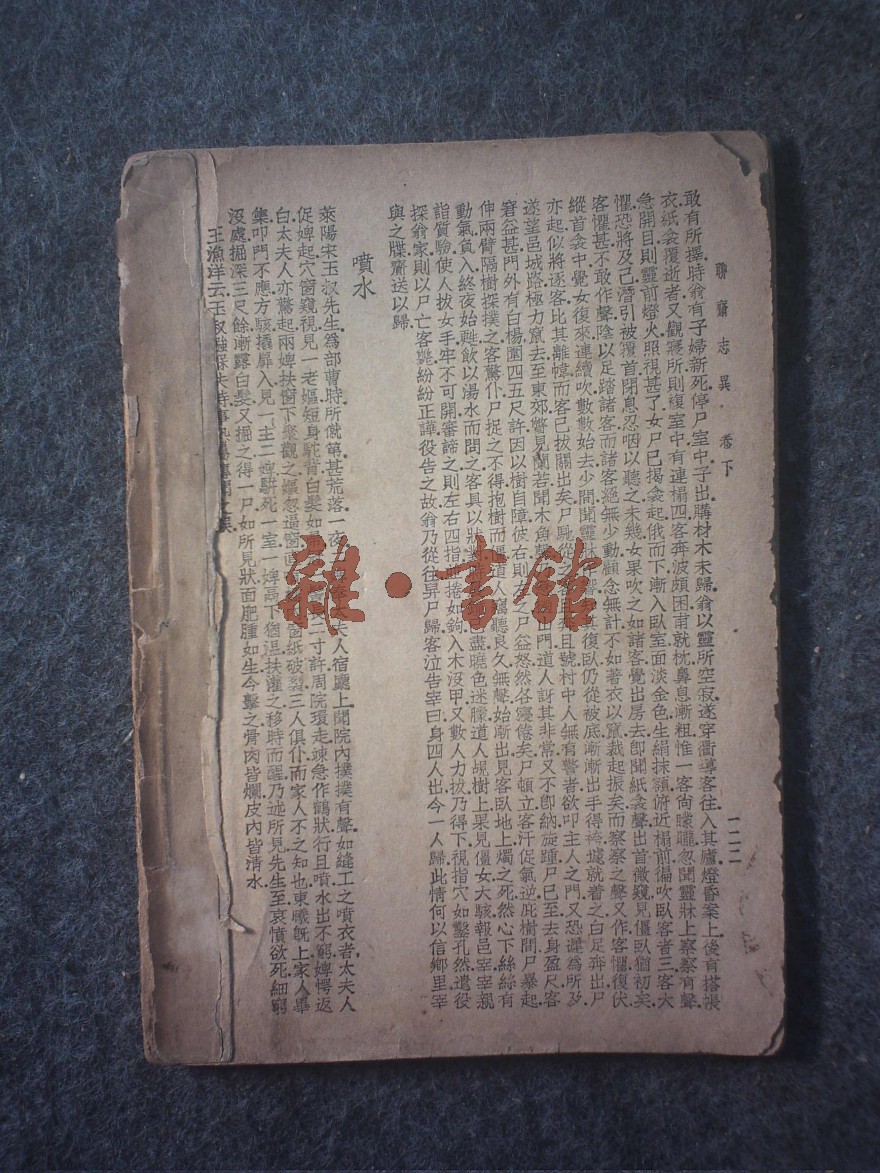 聊齋志異　卷下　一二二
敢有所擇.時翁有子婦新死.停尸室中.子出購材木未歸.翁以靈所空寂.遂穿衢導客往.入其廬.燈昏案上.後有搭帳
衣.紙衾覆逝者.又觀寢所.則複室中有連榻.四客奔波頗困.甫就枕.鼻息漸粗.惟一客尚矇矓.忽聞靈牀上察察有聲.
急開目.則靈前燈火.照視甚了.女尸已揭衾起.俄而下.漸入臥室.面淡金色.生絹抹額.俯近榻前.徧吹臥客者三.客大
懼.恐將及己.潛引被覆首.閉息忍咽以聽之.未幾女果來吹之如諸客.覺出房去.卽聞紙衾聲.出首微窺.見僵臥猶初矣.
客懼甚.不敢作聲.陰以足踏諸客.而諸客絕無少動.顧念無計.不如著衣以竄.裁起振衣.而察察之聲又作.客懼復伏.
縱首衾中.覺女復來.連續吹數數始去.少間聞靈牀
復臥.仍從被底漸漸出手得袴.遽就着之.白足奔出.尸
亦起.似將逐客.比其離幃.而客已拔關出矣.尸馳從
且號.村中人無有警者.欲叩主人之門.又恐遲爲所及.
遂望邑城路.極力竄去.至東郊.瞥見蘭若.聞木魚
門.道人訝其非常.又不卽納.旋踵尸已至.去身盈尺.客
窘益甚.門外有白楊.圍四五尺許.因以樹自障.彼右則
左之.尸益怒.然各寖倦矣.尸頓立.客汗促氣逆.庇樹間.尸暴起.
伸兩臂隔樹探撲之.客驚仆.尸捉之不得.抱樹而僵.道人竊聽良久無聲.始漸出.見客臥地上.燭之死.然心下絲絲有
動氣.負入.終夜始甦.飲以湯水而問之.客具以狀
盡.曉色迷朦.道人覘樹上.果見僵女.大駭.報邑宰.宰親
詣質驗.使人拔女手.牢不可開.審諦之.則左右四指
捲如鉤.入木沒甲.又數人力拔乃得下.視指穴如鑿孔然.遣役
探翁家.則以尸亡客斃.紛紛正譁.役告之故.翁乃從往.舁尸歸.客泣告宰曰.身四人出.今一人歸.此情何以信鄉里.宰
與之牒.齎送以歸.
噴水
萊陽宋玉叔先生.爲部曹時.所僦第甚荒落.一夜
夫人宿廳上.聞院內撲撲有聲.如縫工之噴衣者.太夫人
促婢起.穴窗窺視.見一老嫗.短身駝背.白髮如
二寸許.周院環走.竦急作鶴狀.行且噴水出不窮.婢愕返
白.太夫人亦驚起.兩婢扶窗下聚觀之.嫗忽逼窗
窗紙破裂.三人俱仆.而家人不之知也.東曦旣上.家人畢
集.叩門不應.方駭.撬扉入.見一主二婢.駢死一室.一婢鬲下猶溫.扶灌之.移時而醒.乃述所見.先生至.哀憤欲死.細窮
沒處.掘深三尺餘.漸露白髮.又掘之.得一尸.如所見狀.面肥腫如生.令擊之.骨肉皆爛.皮內皆清水.
王漁洋云玉叔襁褓失恃
雜·書館